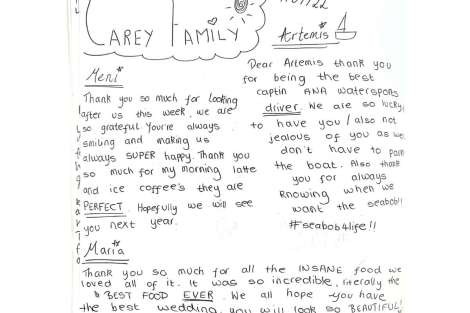 CAREY FAMILY
Meni*
Thank you so much for looking
after us this week, we are
so grateful. You're always
smiling and making us
always SUPER happy. Thank you
so much for my morning latte
and ice coffee's they are
PERFECT. Hopefully we will see
you next year.
Artemis*
Dear Artemis thank you
for being the best
captin ANA watersports
driver. We are so lucky
to have you / also not
jealous of you as we
don't have to
the boat. Also thank
you for always
knowing when we
want the seabob!!
#seabob4life!!
Maria*
Thank you so much for all the INSANE food we
loved all of it. It was so incredible, literally the
BEST FOOD EVER. We all hope you have
the best wedding, you will look so BEAUTIFUL!